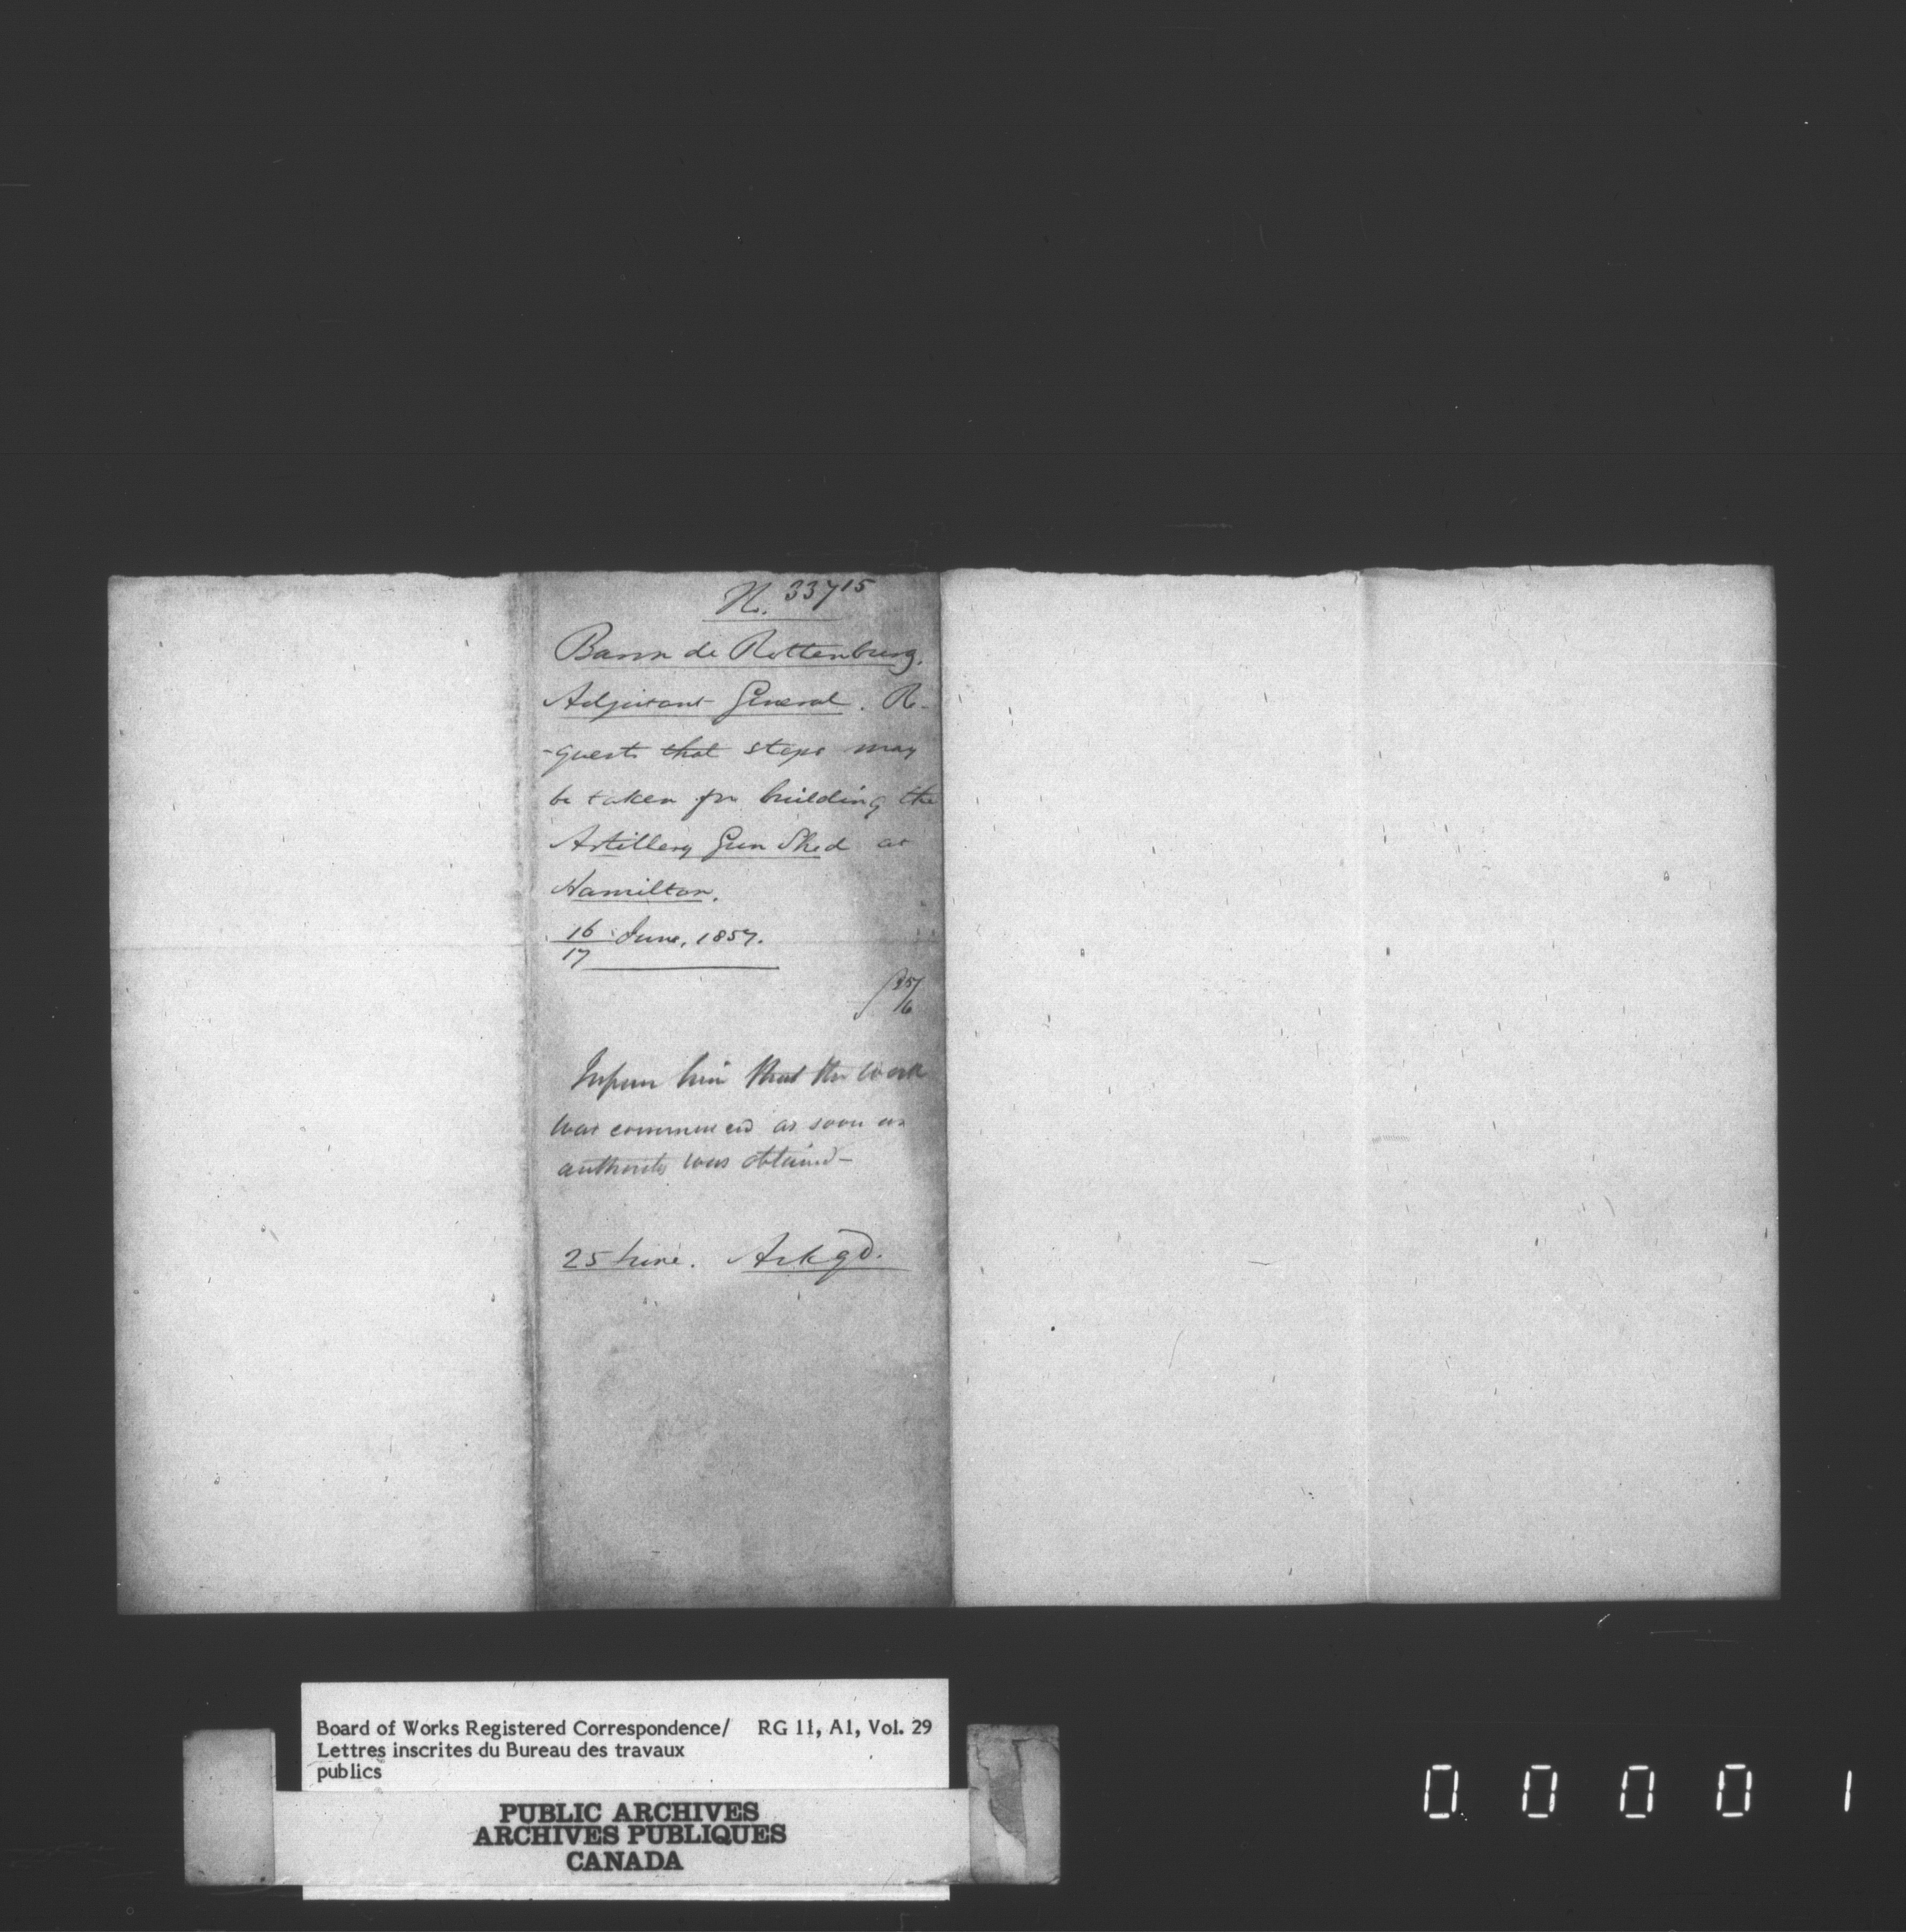 N. 33715
Baron de Rottenburg,
Adjutant General. Re-
-quests that steps may
be taken for building the
Artillery Gun Shed at
Hamilton.
16 June, 1857.
17
25/6
Inform him that the work
was commenced as soon as
authority was obtained—
25 June. Ackgd.
Board of Works Registered Correspondence/ RG 11, A1, Vol. 29
Lettres inscrites du Bureau des travaux
publics
PUBLIC ARCHIVES
ARCHIVES PUBLIQUES
CANADA
0 0 0 0 1